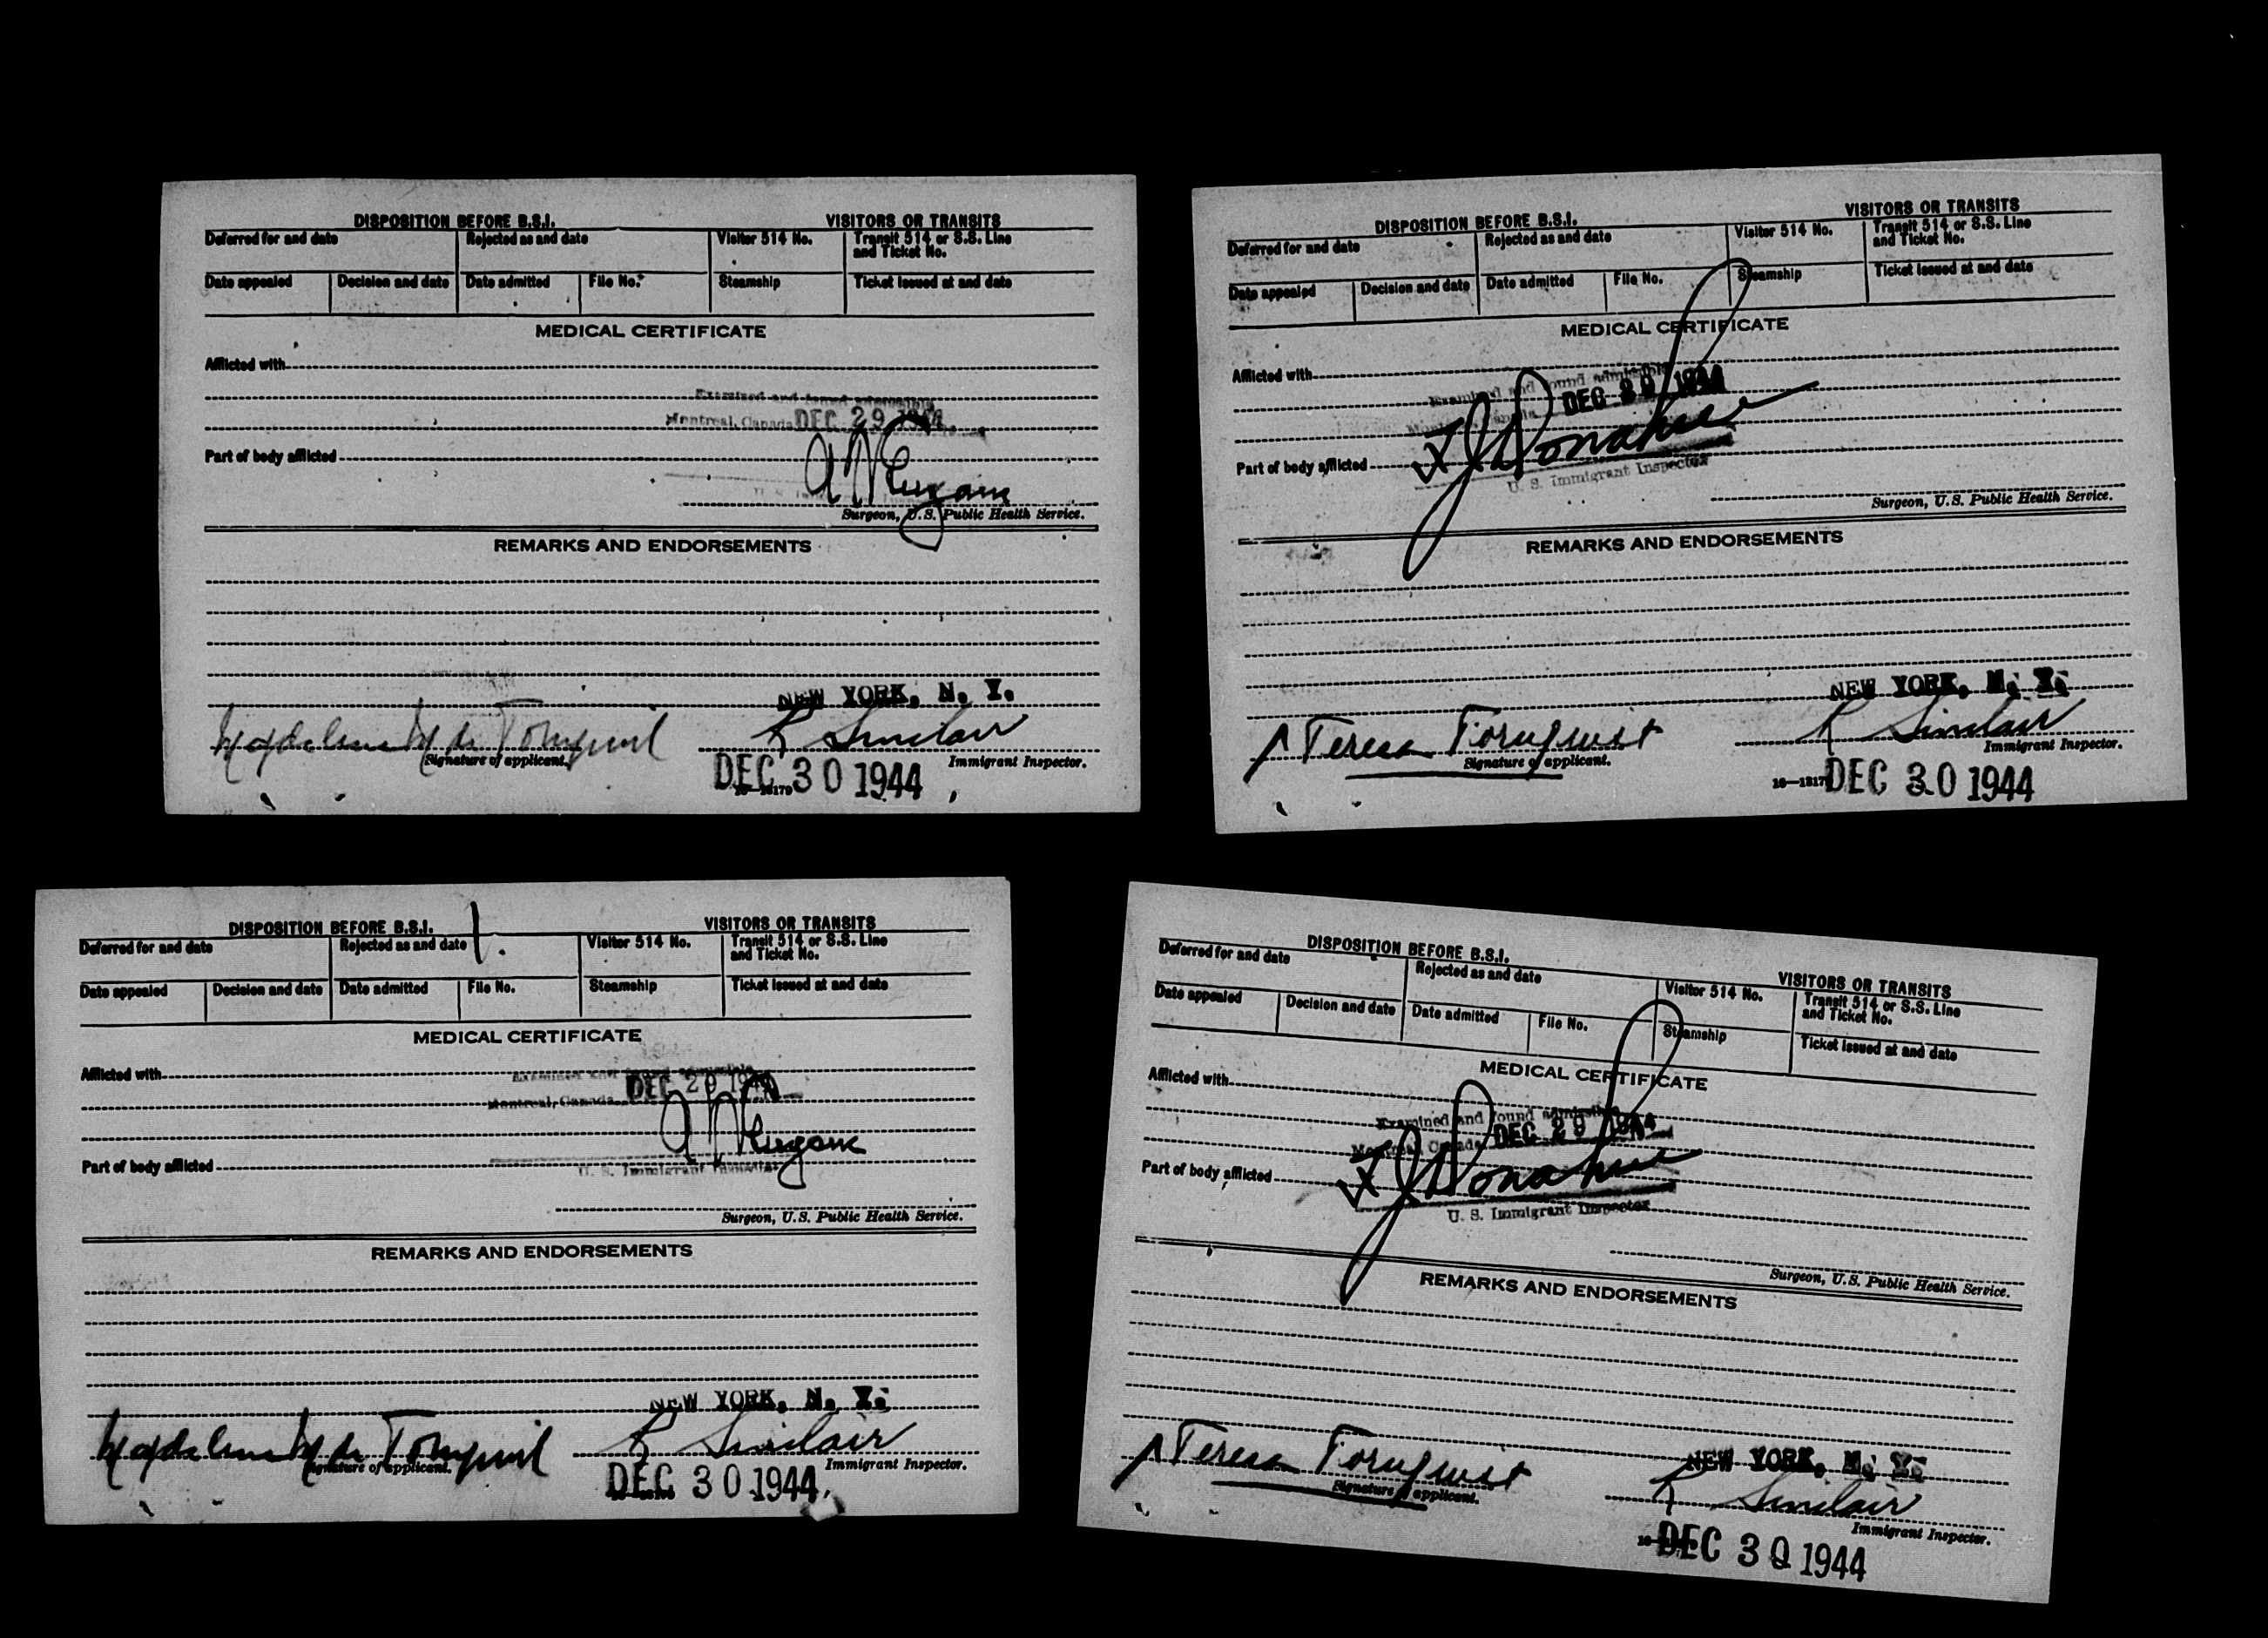 DISPOSITION BEFORE B.S.I. VISITORS OR TRANSITS
Deferred for and date Rejected as and date Visitor 514 No. Transit 514 or S.S. Line and Ticket No.
Date appealed Decision and date Date admitted File No. Steamship Ticket issued at and date
MEDICAL CERTIFICATE
Afflicted with
Examined and found admissible
Montreal, Canada DEC 29 1944
Part of body afflicted
Surgeon, U.S. Public Health Service.
REMARKS AND ENDORSEMENTS
NEW YORK, N. Y.
R Sinclair
Signature of applicant. Immigrant Inspector.
DEC 30 1944
DISPOSITION BEFORE B.S.I. VISITORS OR TRANSITS
Deferred for and date Rejected as and date Visitor 514 No. Transit 514 or S.S. Line and Ticket No.
Date appealed Decision and date Date admitted File No. Steamship Ticket issued at and date
MEDICAL CERTIFICATE
Afflicted with
Examined and found admissible
DEC 29 1944
Part of body afflicted J Donahue
U. S. Immigrant Inspector
Surgeon, U.S. Public Health Service.
REMARKS AND ENDORSEMENTS
NEW YORK, N. Y.
Teresa Tornquist R Sinclair
Signature of applicant. Immigrant Inspector.
DEC 30 1944
DISPOSITION BEFORE B.S.I. VISITORS OR TRANSITS
Deferred for and date Rejected as and date Visitor 514 No. Transit 514 or S.S. Line and Ticket No.
Date appealed Decision and date Date admitted File No. Steamship Ticket issued at and date
MEDICAL CERTIFICATE
Afflicted with
DEC 29 1944
Montreal, Canada
Part of body afflicted
U. S. Immigrant Inspector
Surgeon, U.S. Public Health Service.
REMARKS AND ENDORSEMENTS
NEW YORK, N. Y.
R Sinclair
Signature of applicant. Immigrant Inspector.
DEC 30 1944
DISPOSITION BEFORE B.S.I. VISITORS OR TRANSITS
Deferred for and date Rejected as and date Visitor 514 No. Transit 514 or S.S. Line and Ticket No.
Date appealed Decision and date Date admitted File No. Steamship Ticket issued at and date
MEDICAL CERTIFICATE
Afflicted with
Examined and found admissible
Montreal, Canada DEC 29 1944
Part of body afflicted J Donahue
U. S. Immigrant Inspector
Surgeon, U.S. Public Health Service.
REMARKS AND ENDORSEMENTS
NEW YORK, N. Y.
Teresa Tornquist R Sinclair
Signature of applicant. Immigrant Inspector.
DEC 30 1944